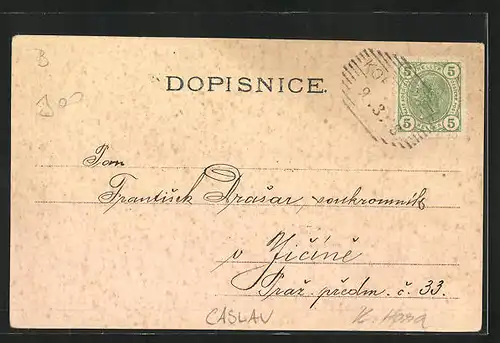 B
DOPISNICE.
KOL
9.3.
5 5
5 5
Pan
František Arašar, soukromník
v Jičíně
Praž. předm. č. 33.
ČASLAV K. Hora